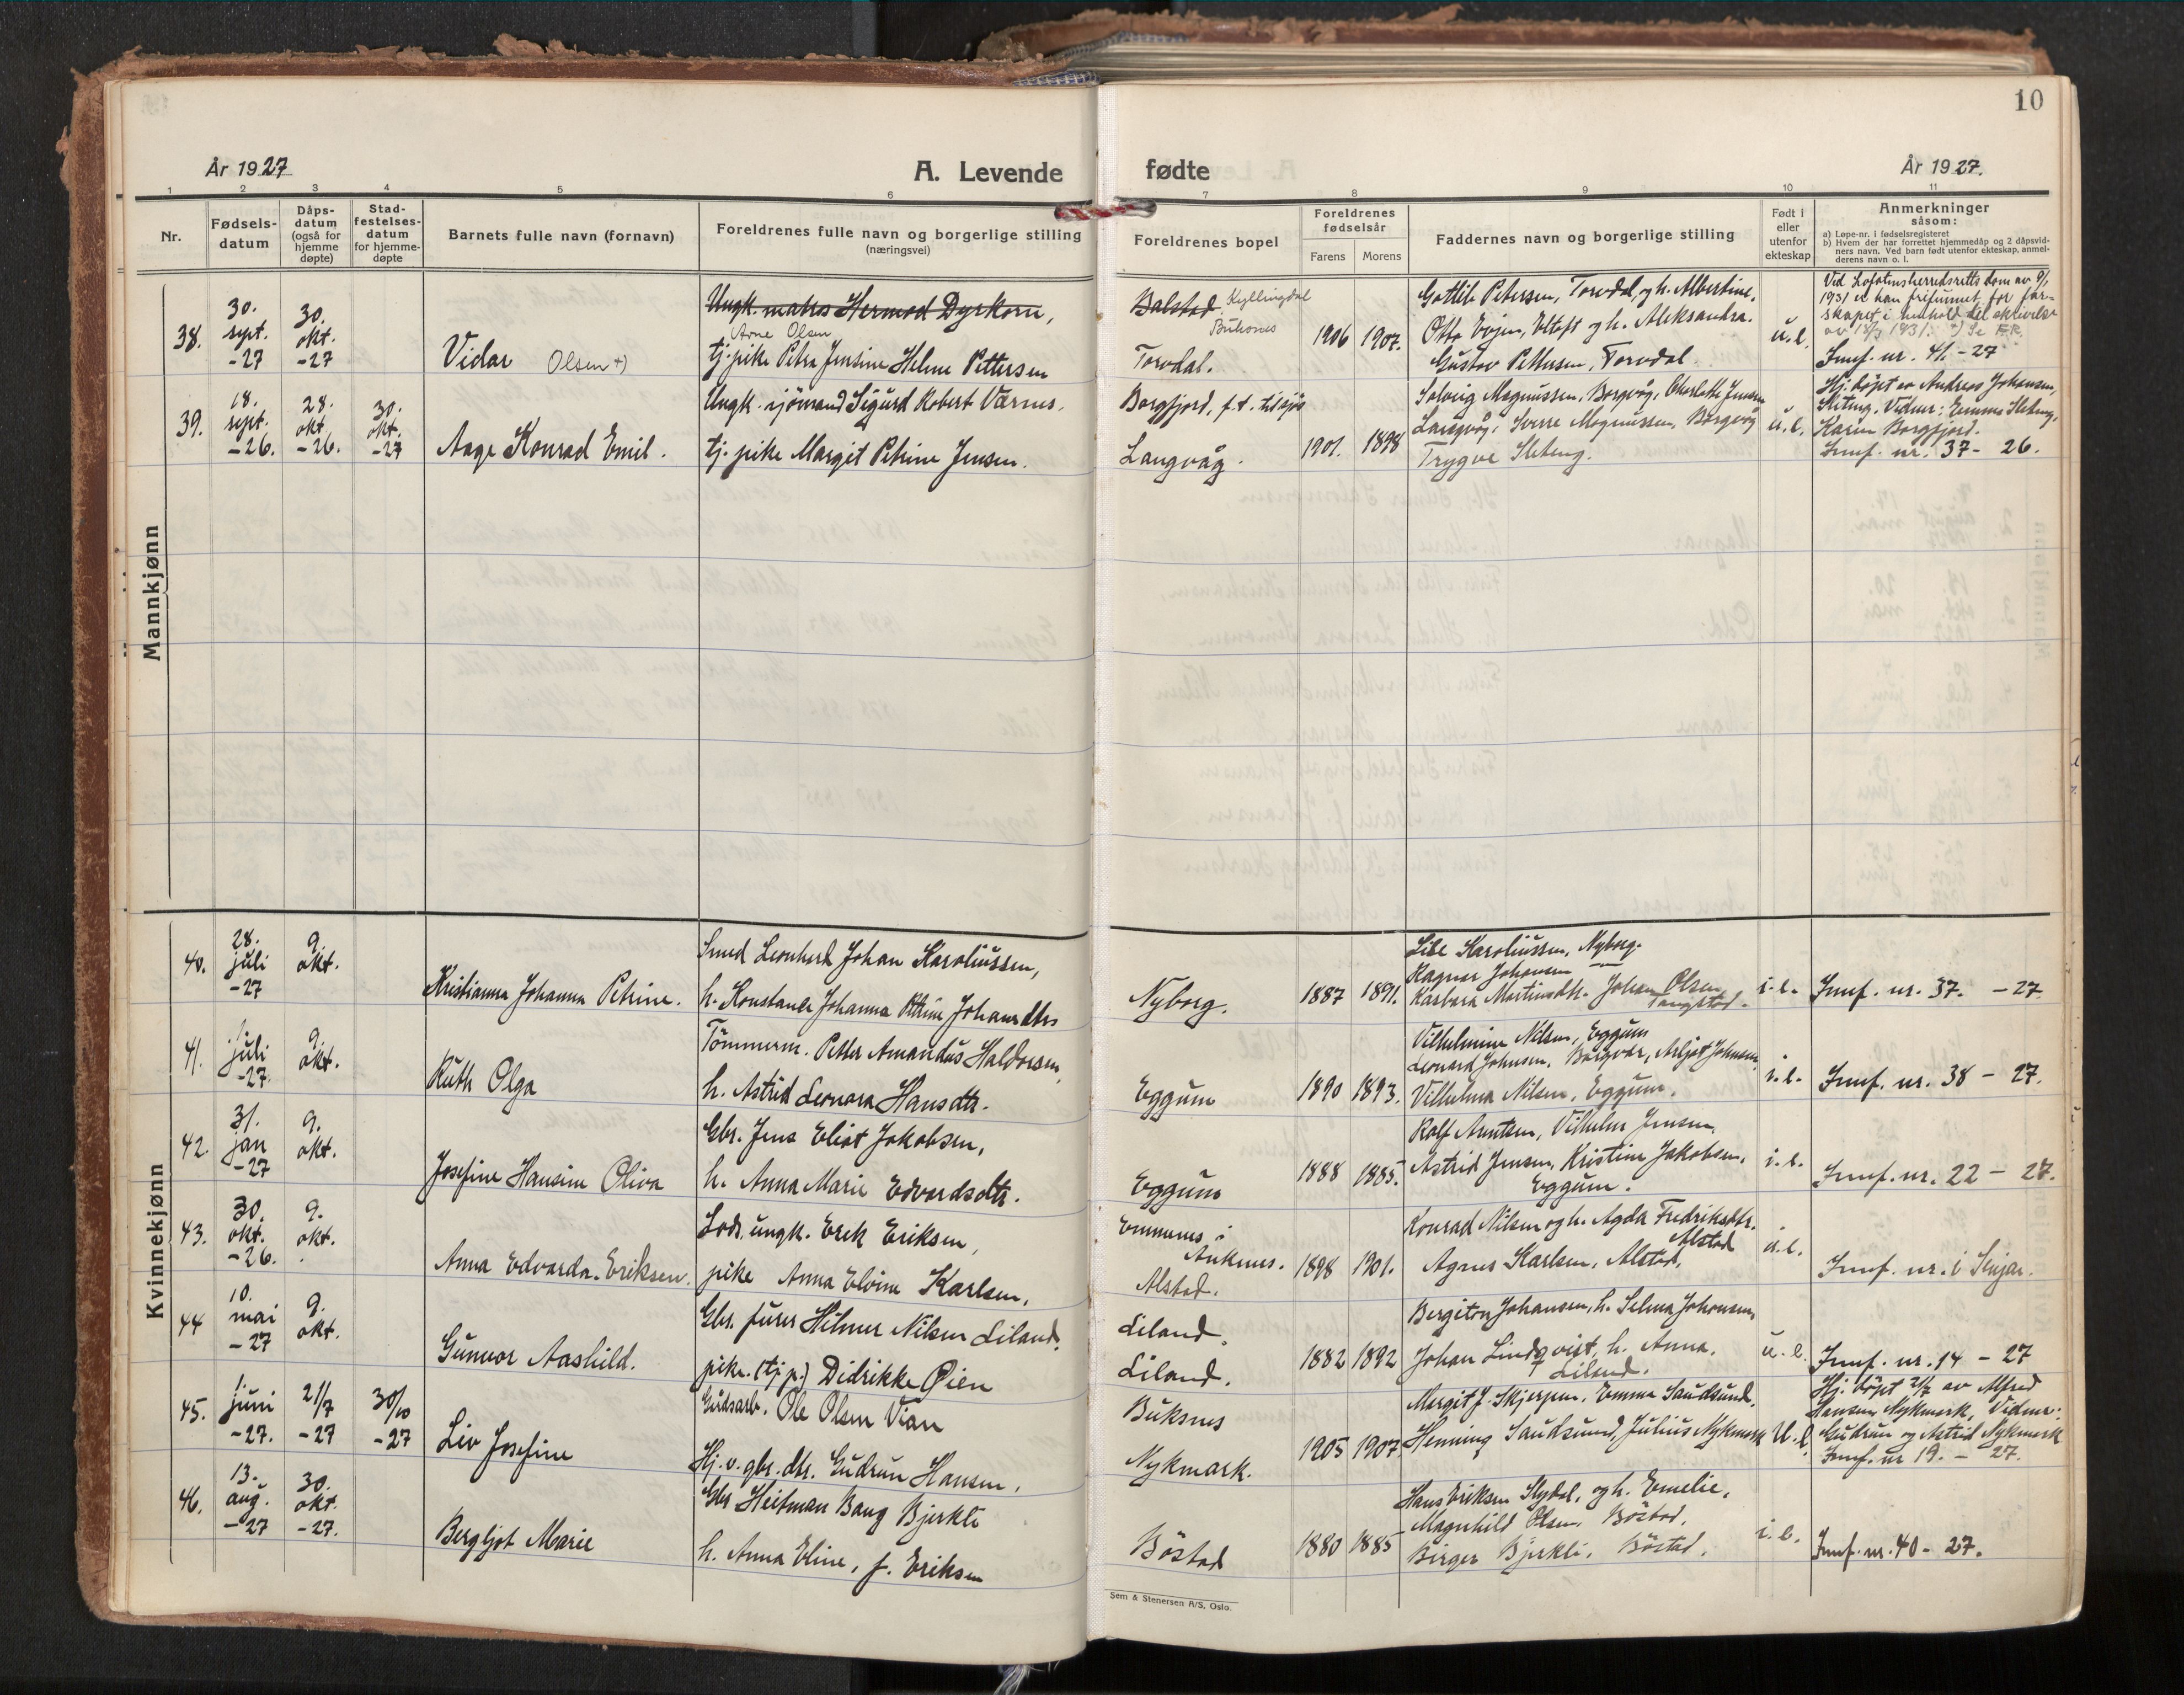 10
År 1927
A. Levende
fødte
År 1927.
1 2 3 4 5 6 7 8 9 10 11
Nr.
Fødsels-
datum
Dåps-
datum
(også for
hjemme
døpte)
Stad-
festelses-
datum
for hjemme-
døpte
Barnets fulle navn (fornavn)
Foreldrenes fulle navn og borgerlige stilling
(næringsvei)
Foreldrenes bopel
Foreldrenes
fødselsår
Farens Morens
Faddernes navn og borgerlige stilling
Født i
eller
utenfor
ekteskap
Anmerkninger
såsom:
a) Løpe-nr. i fødselsregisteret
b) Hvem der har forrettet hjemmedåp og 2 dåpsvid-
ners navn. Ved barn født utenfor ekteskap, anmel-
derens navn o. l.
Mannkjønn
38.
30.
sept.
-27
30.
okt.
-27
Vidar Olsen +)
Ungk. matros Hermod Dyrkorn,
Arne Olsen
tj. pike Petra Jensine Helene Pettersen
Balstad Kyllingdal
Buksnes
Torvdal.
1906 1907.
Gottlib Petersen, Torvdal, og h. Albertine.
Otto Evjen, Eltoft og h. Aleksandra.
Gustav Pettersen, Torvdal.
u.e.
Ved Lofotens herredsretts dom av 9/1
1931 er han frifunnet for far-
skapet i henhold til skrivelse
av 13/3 1931. +) Se FR.
Innf. nr. 41. - 27
39.
18.
sept.
-26.
28.
okt
-26.
30.
okt.
-27
Aage Konrad Emil.
Ungk. sjömand Sigurd Robert Værnes.
tj. pike Margit Petrine Jensen.
Borgfjord, f.t. tilsjøs
Langvåg.
1901. 1898
Solveig Magnussen, Borgvåg, Charlotte Jensen
Langvåg, Sverre Magnussen, Borgvåg
Trygve Steteng.
u.e.
Hj. döpt av Andreas Johansen,
Steteng. Vidner: Emma Steteng,
Karen Borgfjord.
Innf. nr. 37 - 26.
Kvinnekjønn
40.
28.
juli
-27
9.
okt.
Kristianna Johanna Petrine.
Smed Leonhard Johan Karoliussen,
h. Konstanse Johanna Petrine Johansdtr
Nyborg.
1887 1891.
Lise Karoliussen, Nyborg.
Ragnar Johansen —"—
Barbara Martinsdtr. Johan Olsen
Tangstad.
i.e.
Innf. nr. 37. - 27.
41.
1.
juli
-27.
9.
okt.
Ruth Olga
Tömmerm. Petter Amandus Haldorsen,
h. Astrid Leonora Hansdtr.
Eggum
1890 1893.
Vilhelmine Nilsen, Eggum
Leonard Johnsen, Borgvær, Arljot Johnsen,
Vilhelma Nilsen, Eggum.
i.e.
Innf. nr. 38 - 27.
42.
31.
jan
-27
9.
okt.
Josefine Hansine Oliva
Gbr. Jens Eliot Jakobsen,
h. Anna Marie Edvardsdtr.
Eggum
1888 1885.
Rolf Arntsen, Vilhelm Jensen,
Astrid Jensen, Kristine Jakobsen,
Eggum.
i.e.
Innf. nr. 22 - 27.
43.
30.
okt.
-26.
9.
okt.
Anna Edvarda. Eriksen.
Lods, ungk. Erik Eriksen,
pike Anna Elvine Karlsen.
Emmenes i
Ankenes.
Alstad.
1898 1901.
Konrad Nilsen og h. Agda Fredriksdtr.
Alstad
Agnes Karlsen, Alstad,
u.e.
Innf. nr. i Senjar.
44
10.
mai
-27
9.
okt.
Gunvor Aashild.
Gbr. furer Hilmer Nilsen Liland,
pike. (tj. p.) Didrikke Øien
Liland.
Liland.
1882 1892
Bergiton Johansen, h. Selma Johansen
Johan Lindqvist, h. Anna.
Liland.
u.e.
Innf. nr. 14 - 27
45.
1.
juni
-27.
21/7
-27
30/10
-27
Liv Josefine
Gårdsarb. Ole Olsen Vian
Hj. v. gbr. dtr. Gudrun Hansen.
Buksnes
Nykmark.
1905 1907
Margit J. Skjerpen, Emma Sandsund.
Henning Sandsund, Julius Nykmark
U.e.
Hj. döpt 21/7 av Alfred
Hansen Nykmark, Vidner:
Gudrun og Astrid Nykmark
Innf. nr 19. - 27.
46.
13.
aug.
-27
30.
okt.
-27.
Bergljot Marie
Gbr Heitman Bang Bjerkli
h. Anna Eline, f. Eriksen
Böstad
1880 1885
Hans Eriksen Slydal, og h. Emelie,
Magnhild Olsen, Böstad.
Birger Bjerkli, Böstad.
i.e.
Innf. nr. 40 - 27.
Sem & Stenersen A/S, Oslo.